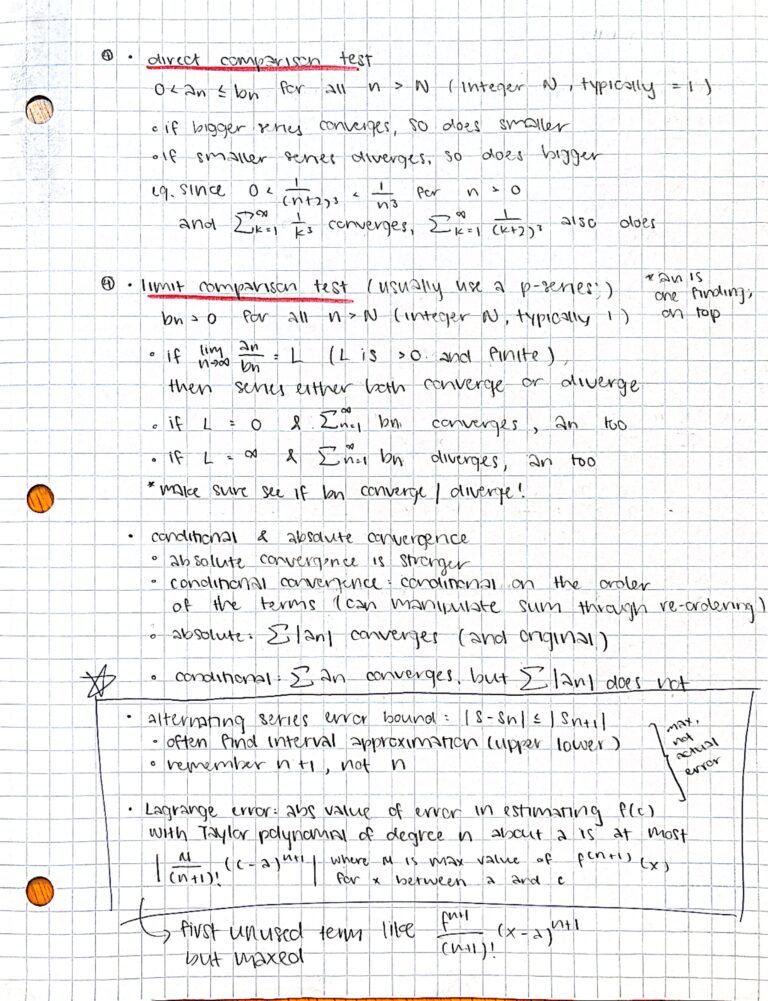 ④ • direct comparison test
0 < an ≤ bn for all n > N (integer N, typically = 1)
• if bigger series converges, so does smaller
• if smaller series diverges, so does bigger
eg. since 0 < 1/(n+2)^3 < 1/n^3 for n > 0
and ∑_{k=1}^∞ 1/k^3 converges, ∑_{k=1}^∞ 1/(k+2)^3 also does
④ • limit comparison test (usually use a p-series;)
*an is
one finding,
on top
bn > 0 for all n > N (integer N, typically 1)
• if lim n→∞ an/bn = L (L is > 0 and finite),
then series either both converge or diverge
• if L = 0 & ∑_{n=1}^∞ bn converges, an too
• if L = ∞ & ∑_{n=1}^∞ bn diverges, an too
*make sure see if bn converge / diverge!
• conditional & absolute convergence
• absolute convergence is stronger
• conditional convergence: conditional on the order
of the terms (can manipulate sum through re-ordering)
• absolute: ∑|an| converges (and original)
• conditional: ∑ an converges, but ∑|an| does not
• alternating series error bound: |S-Sn| ≤ |Sn+1|
• often find interval approximation (upper lower)
• remember n+1, not n
max,
not
actual
error
• Lagrange error: abs value of error in estimating f(c)
with Taylor polynomial of degree n about a is at most
|M/(n+1)! (c-a)^{n+1}| where M is max value of f^{(n+1)}(x)
for x between a and c
↳ first unused term like f^{n+1}/(n+1)! (x-a)^{n+1}
but maxed